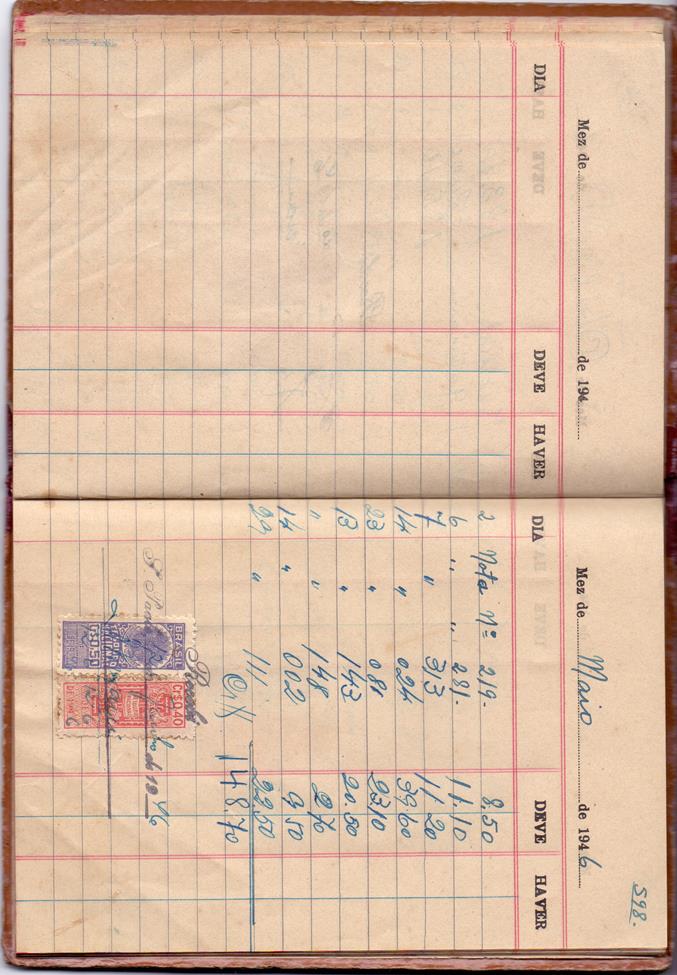 Mez de de 194
DIA DEVE HAVER
598.
Mez de Maio de 1946
DIA DEVE HAVER
2 Nota Nº 219- 8.50
6 " " 281- 11.10
7 " 313 11.20
14 " 024 39.60
23 " 081 23.10
13 " 143 20.50
" " 148 2.70
14 " 002 9.50
29 " 111 22.50
Cr$ 148.70
Recebi
de 1946
BRASIL
Cr$0,50
Cr$0,40